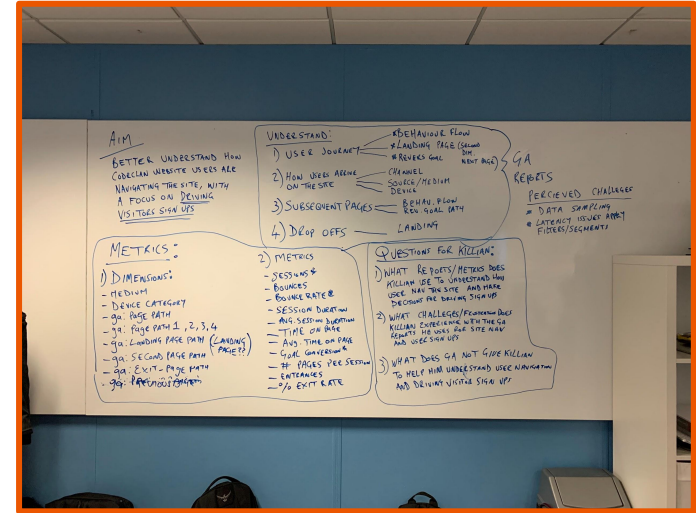 AIM
BETTER UNDERSTAND HOW
CODECLAN WEBSITE USERS ARE
NAVIGATING THE SITE, WITH
A FOCUS ON DRIVING
VISITORS SIGN UPS
UNDERSTAND:
1) USER JOURNEY
* BEHAVIOUR FLOW
* LANDING PAGE (SECOND DIM NEXT PAGE)
* REVERS GOAL
2) HOW USERS ARRIVE
ON THE SITE
CHANNEL
SOURCE/MEDIUM
DEVICE
3) SUBSEQUENT PAGES
BEHAV. FLOW
REV. GOAL PATH
4) DROP OFFS
LANDING
GA
REPORTS
PERCIEVED CHALLENGES
* DATA SAMPLING
* LATENCY ISSUES APPLY
FILTERS/SEGMENTS
METRICS:
1) DIMENSIONS:
- MEDIUM
- DEVICE CATEGORY
- ga: PAGE PATH
- ga: PAGE PATH 1, 2, 3, 4
- ga: LANDING PAGE PATH (LANDING PAGE??)
- ga: SECOND PAGE PATH
- ga: EXIT-PAGE PATH
- ga:
2) METRICS
- SESSIONS *
- BOUNCES
- BOUNCE RATE *
- SESSION DURATION
- AVG. SESSION DURATION
- TIME ON PAGE
- AVG. TIME ON PAGE
- GOAL CONVERSION *
- # PAGES PER SESSION
- ENTRANCES
- % EXIT RATE
QUESTIONS FOR KILLIAN:
1) WHAT REPORTS/METRICS DOES
KILLIAN USE TO UNDERSTAND HOW
USER NAV THE SITE AND MAKE
DECISIONS FOR DRIVING SIGN UPS
2) WHAT CHALLEGES/ DOES
KILLIAN EXPERIENCE WITH THE GA
REPORTS HE USES FOR SITE NAV
AND USER SIGN UPS
3) WHAT DOES GA NOT GIVE KILLIAN
TO HELP HIM UNDERSTAND USER NAVIGATION
AND DRIVING VISITOR SIGN UPS